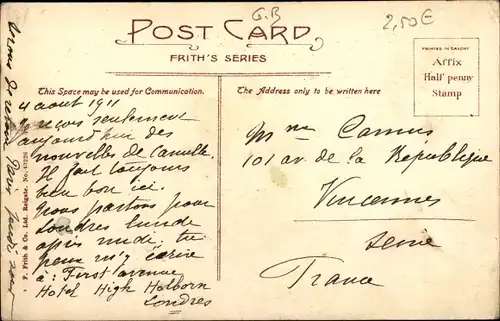 G.B
2,50€
POST CARD
FRITH'S SERIES
PRINTED IN SAXONY
Affix
Half penny
Stamp
This Space may be used for Communication.
The Address only to be written here
4 aout 1911
reçois seulement
aujourd'hui des
nouvelles de Camille.
Il fait toujours
bien bon ici.
Nous partons pour
Londres lundi
après midi, tu
peux m'y écrire
à: First avenue
Hotel High Holborn
Londres
Mme Camus
101 av. de la République
Vincennes
Seine
France
F. Frith & Co. Ltd. Reigate. No.